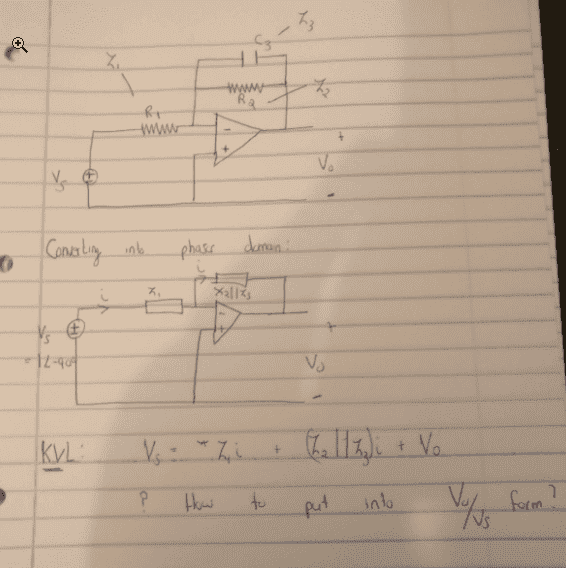 Z3
C3
Z1
Z2
R2
R1
-
+
+
Vs
Vo
-
Converting into phasor domain:
i
i
Z1
Z2||Z3
-
+
Vs
= 1∠-90°
+
Vo
-
KVL: Vs = Z1 i + (Z2||Z3)i + Vo
? How to put into Vo/Vs form?